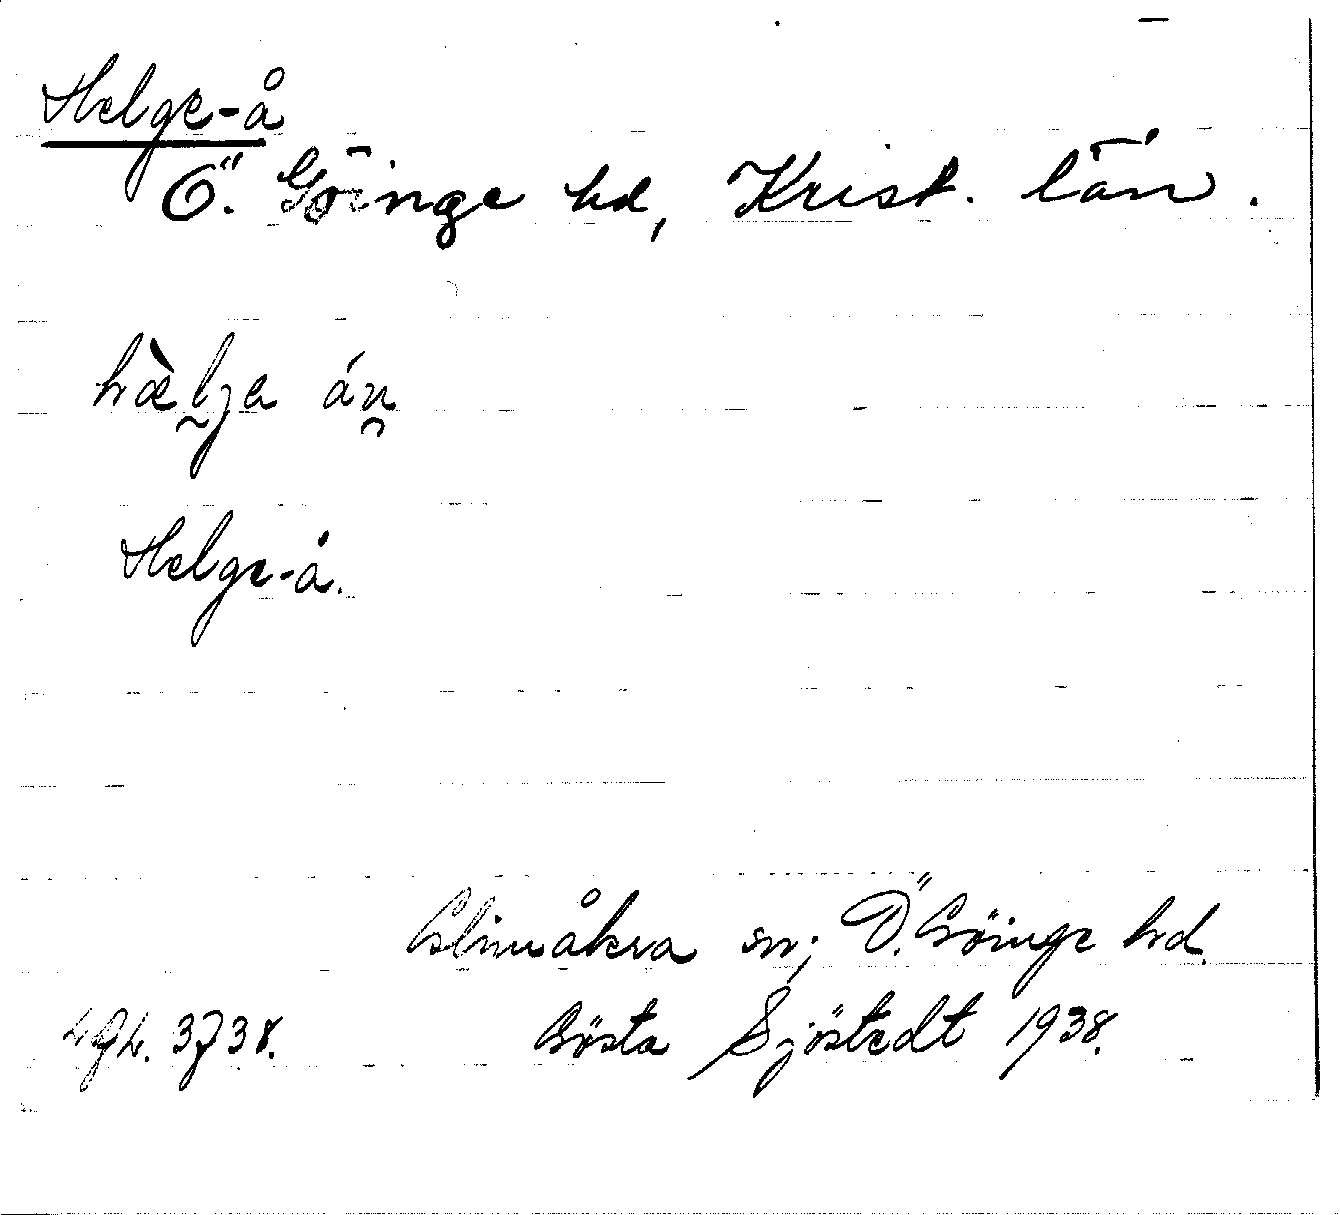 Helge-å
Ö. Göinge hd, Krist. län.
hæ̀lja án
Helge-å.
Glimåkra sn; Ö. Göinge hd.
Gösta Sjöstedt 1938.